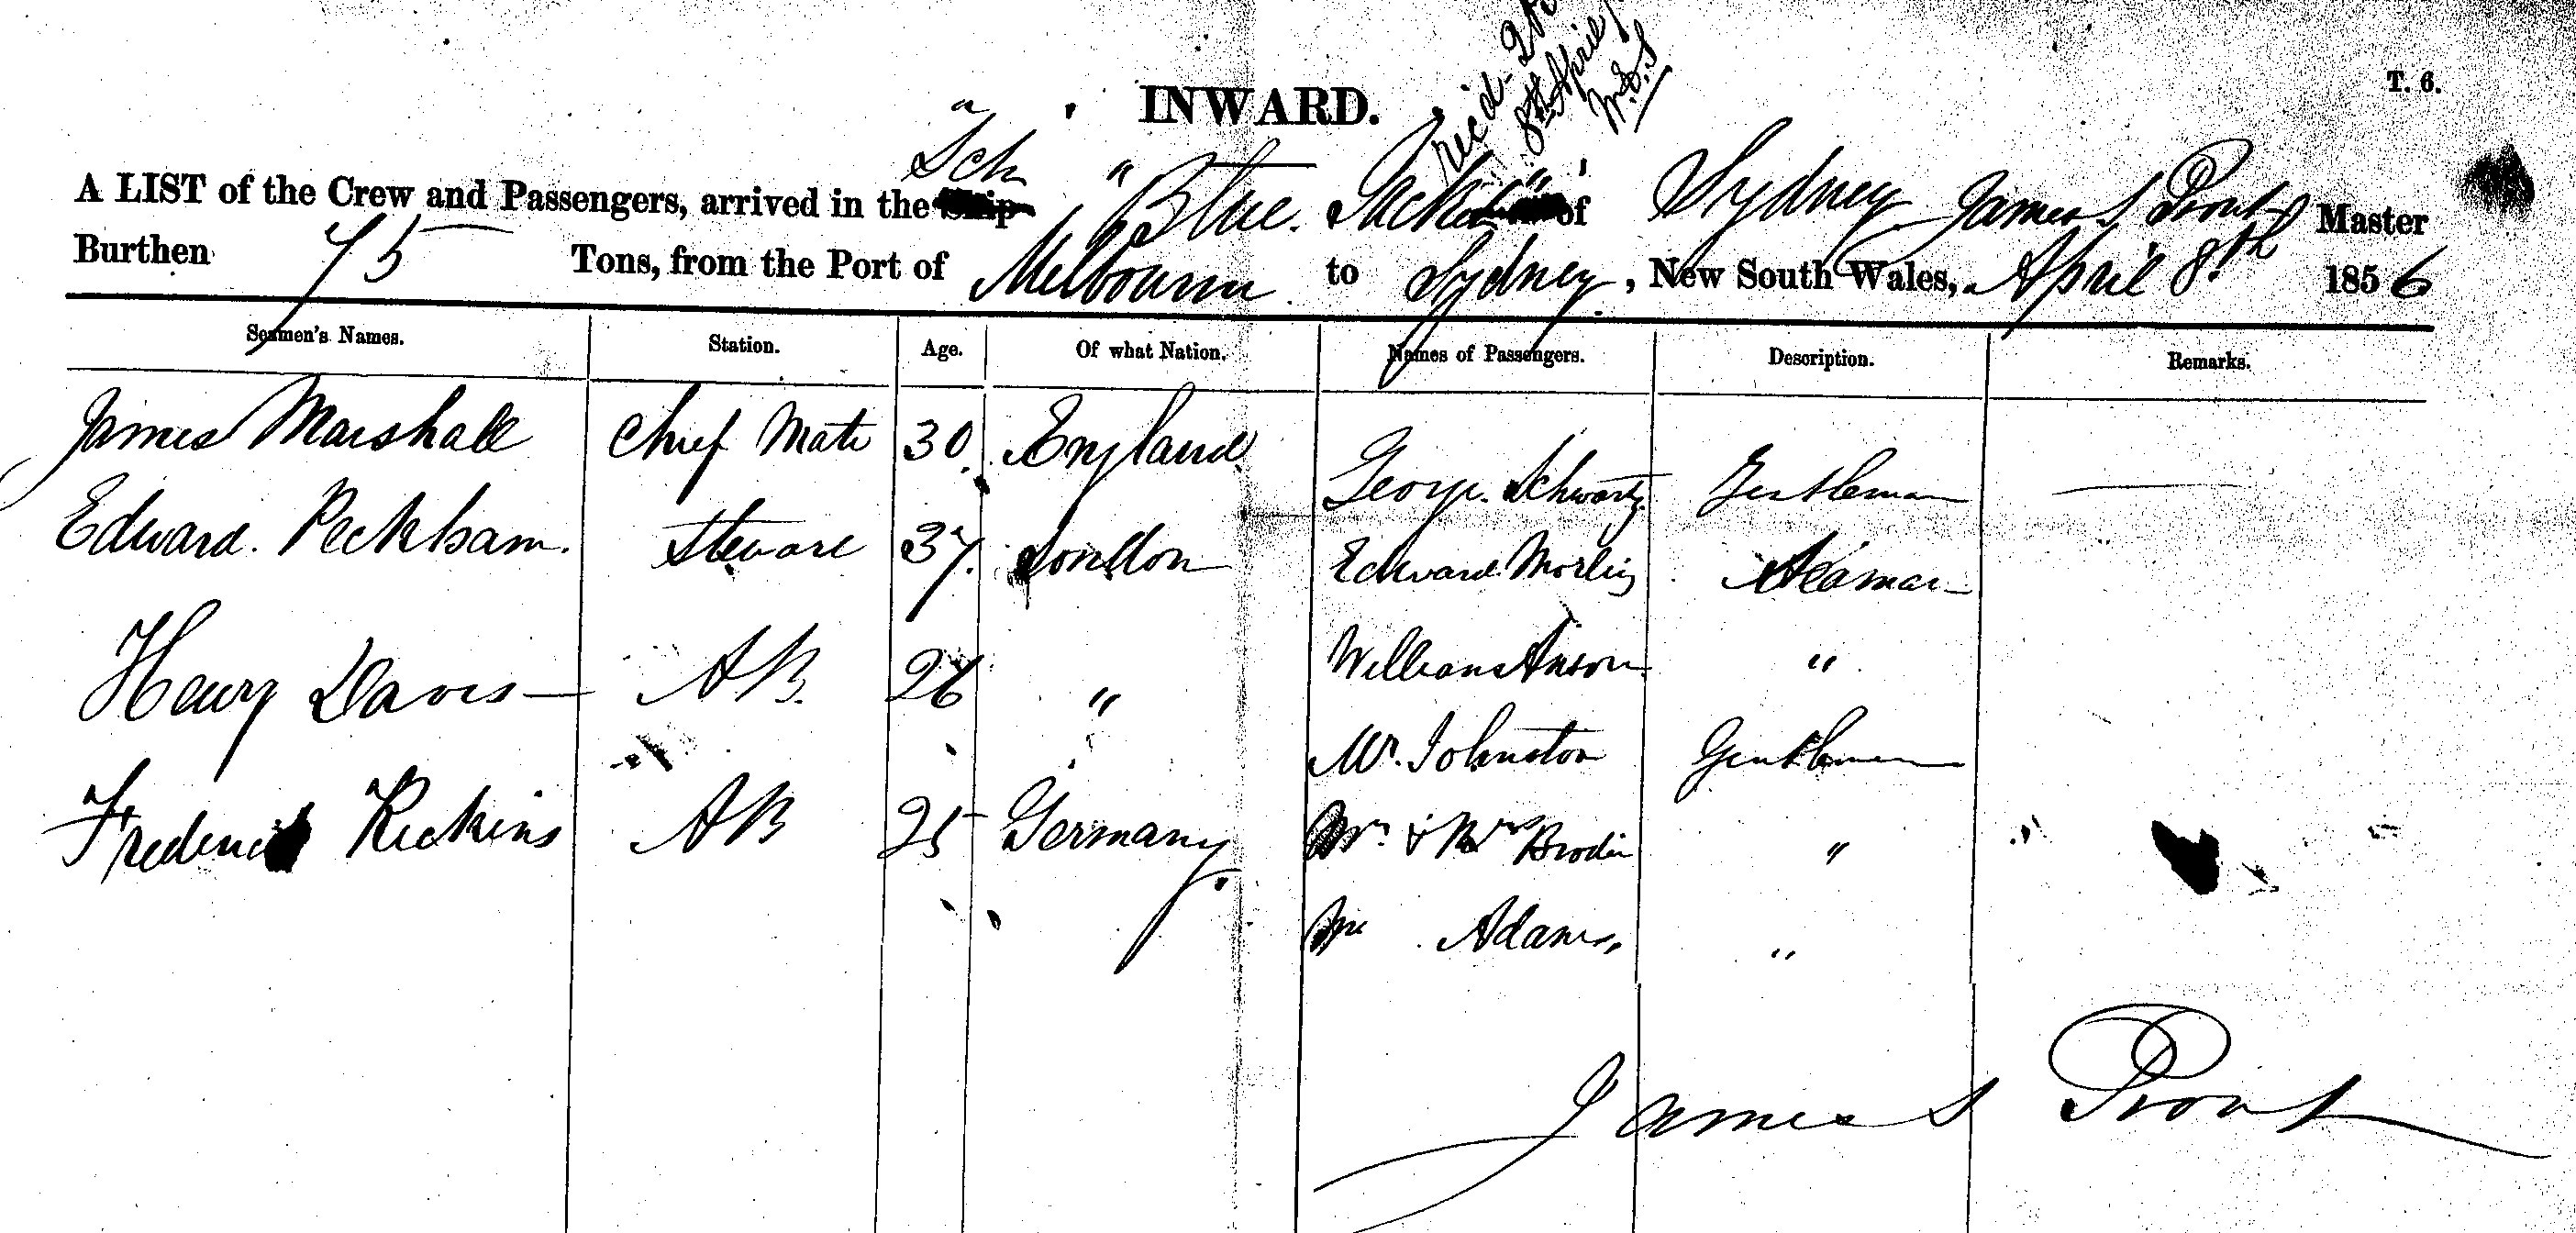 INWARD.
T. 6.
recd 2
8th April
W.S.S
Sch
A LIST of the Crew and Passengers, arrived in the Ship "Blue Jacket" of Sydney James S Prout Master
Burthen 75 Tons, from the Port of Melbourne to Sydney, New South Wales, April 8th 1856
Seamen's Names. Station. Age. Of what Nation. Names of Passengers. Description. Remarks.
James Marshall Chief Mate 30. England George Schwartz Gentleman
Edward. Peckham. Steward 37. London Edward Morling Seaman
Henry Davis AB. 26 " William Anson "
Mr. Johnston Gentleman
Frederick Rickins AB 25 Germany Mr. & Mrs Brodie "
Adams, "
James S Prout